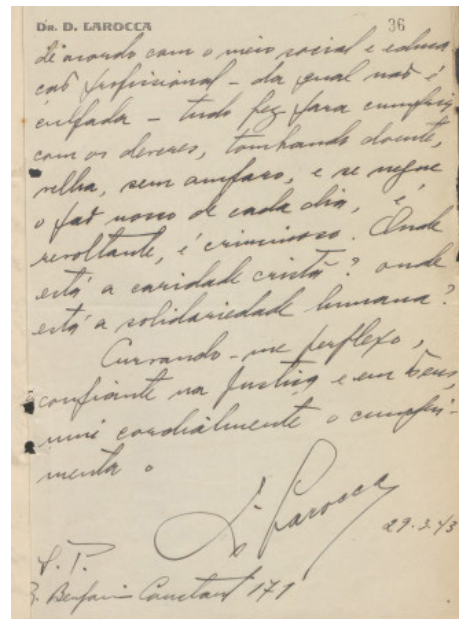 DR. D. LAROCCA
36
de acordo com o meio social e educa
caõ profissional - da qual naõ é
culpada - tudo fez para cumprir
com os deveres, tombando doente,
velha, sem amparo, e se negue
o paõ nosso de cada dia, é
revoltante, é criminoso. Onde
está a caridade cristã? onde
está a solidariedade humana?
Curvando-me perplexo,
confiante na Justiça e em Deus,
mui cordialmente o cumpri-
menta o
D. Larocca
29-3-43
S. P.
R. Benjamin Constant 171